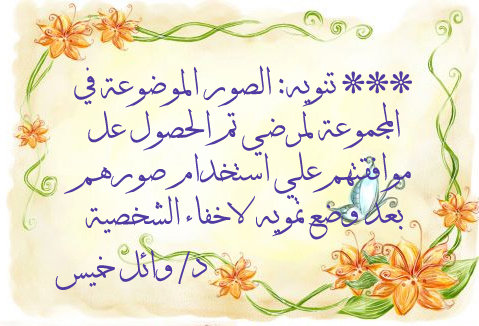 *** تنويه: الصور الموضوعة في
المجموعة لمرضي تم الحصول عل
موافقتهم علي استخدام صورهم
بعد وضع تمويه لاخفاء الشخصية
د/ وائل خميس